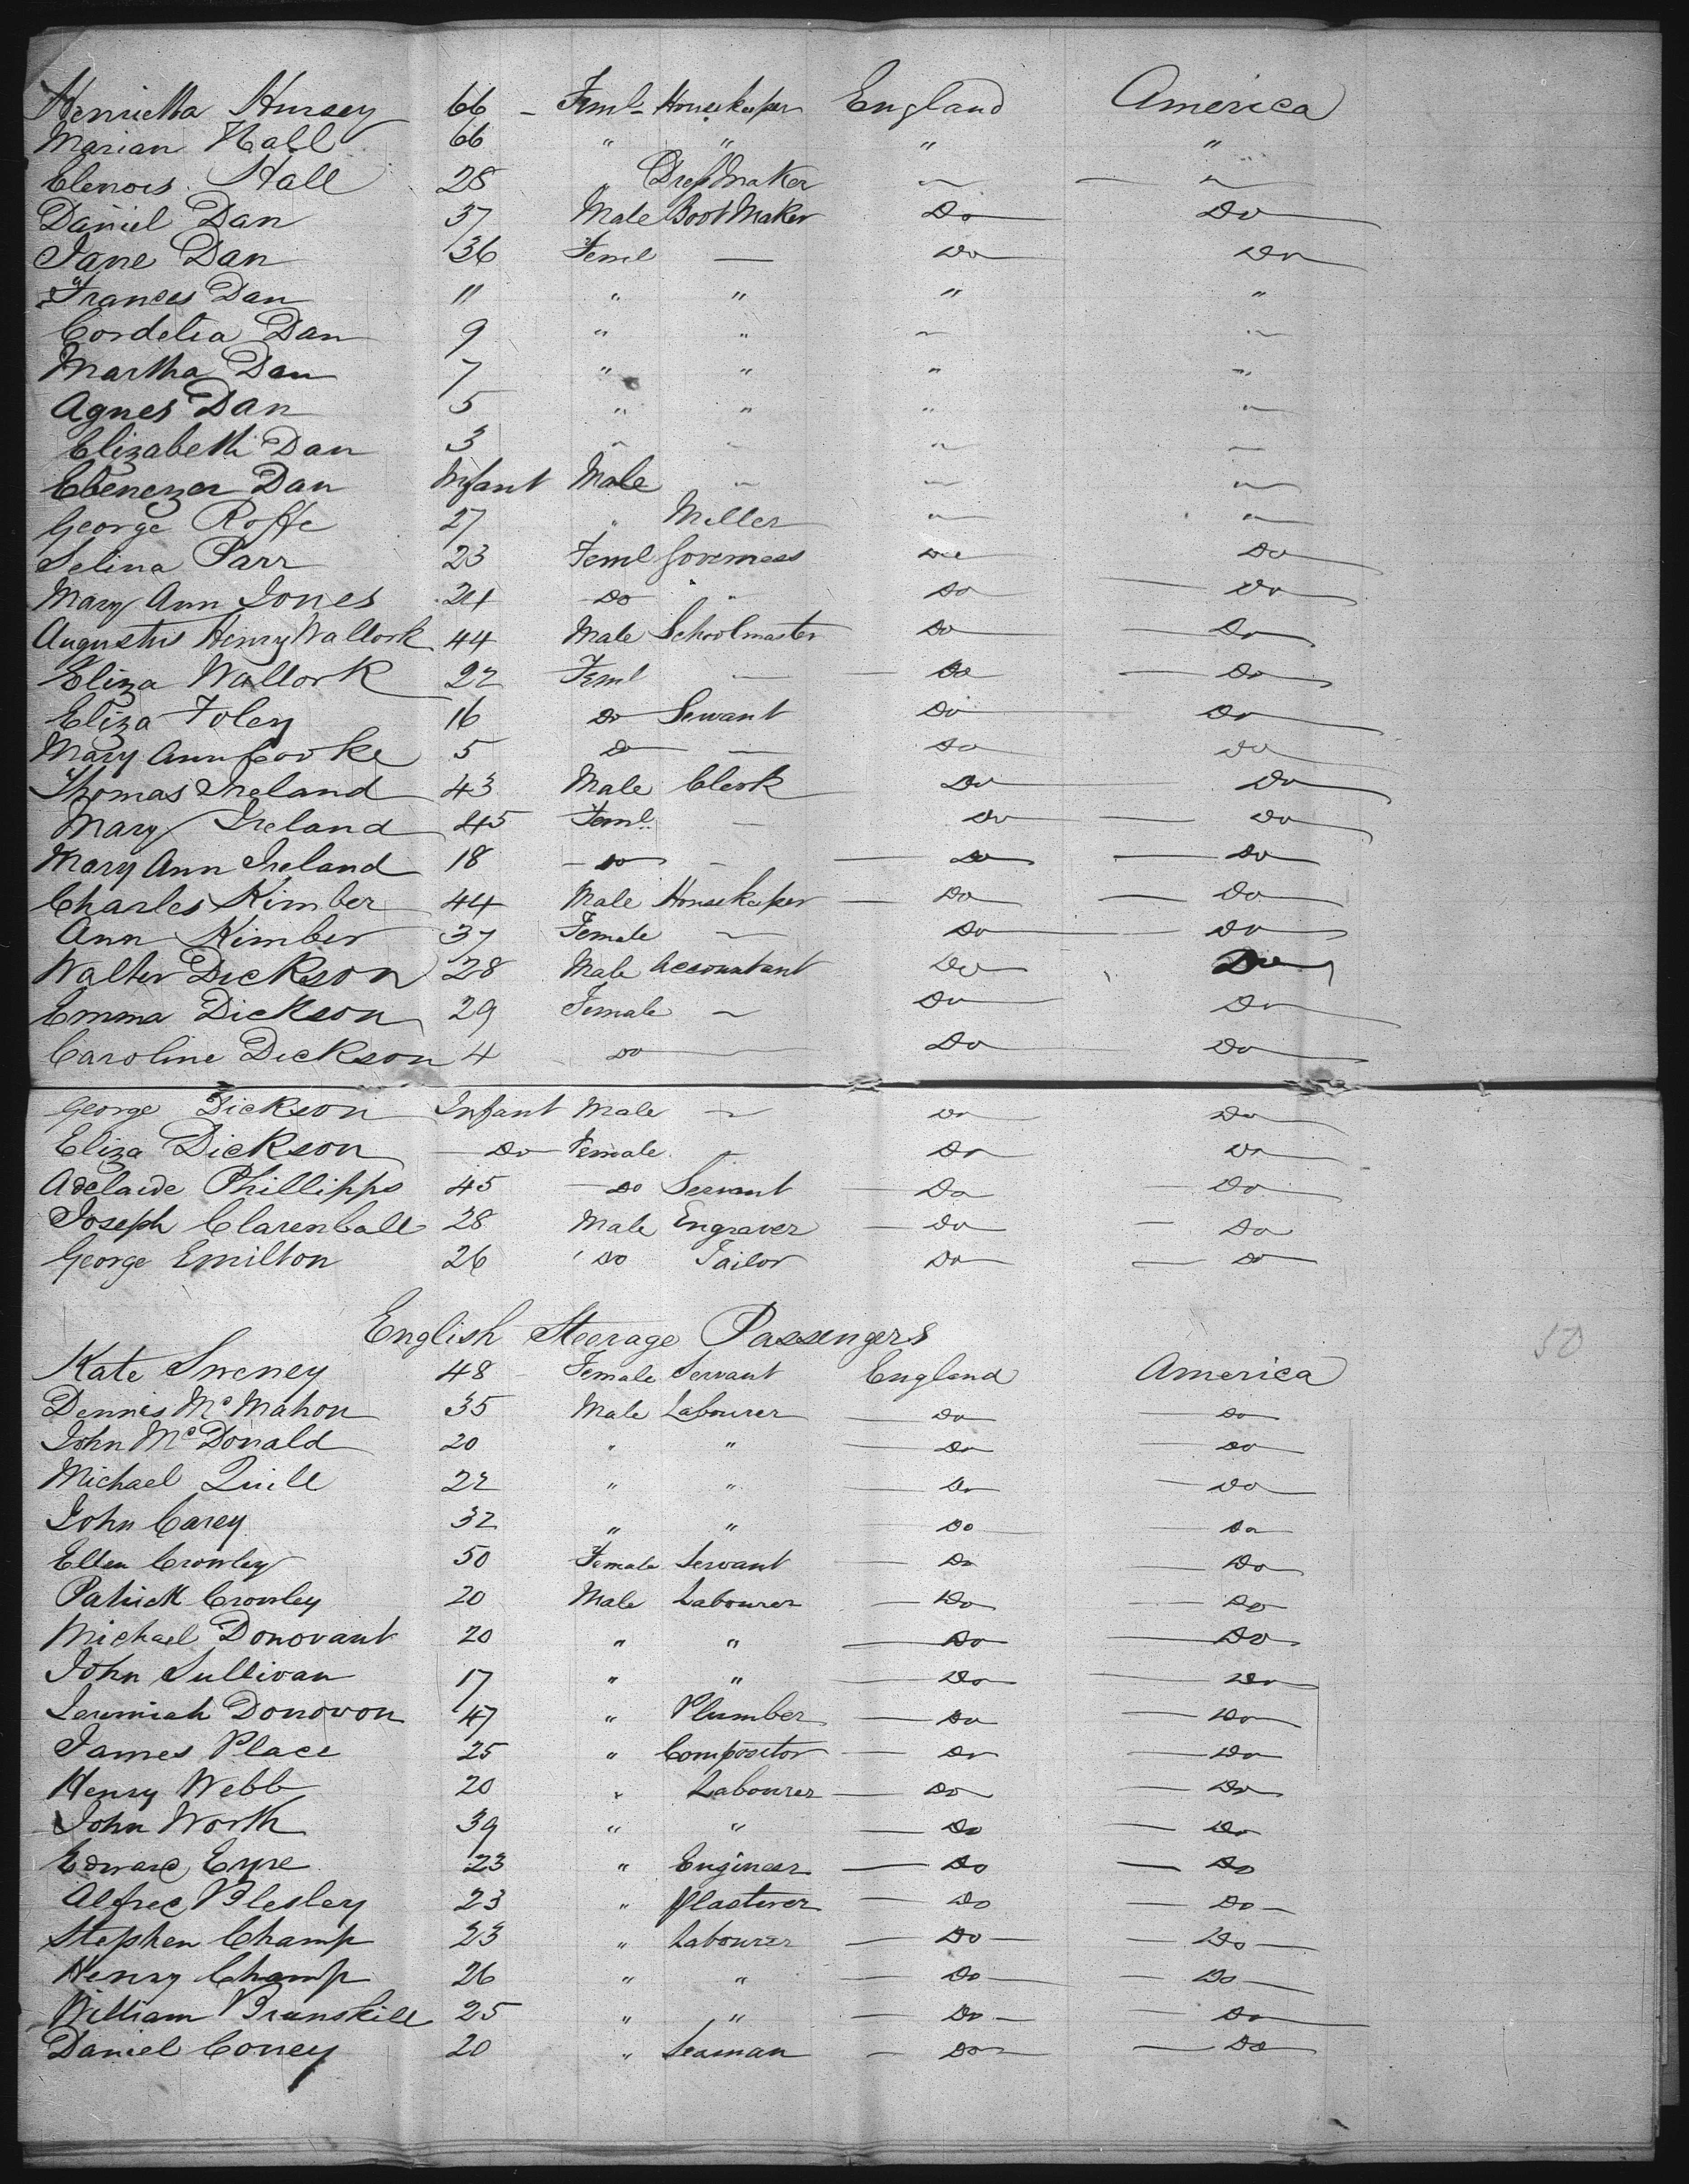 Henrietta Hursey 66 - Feml- Housekeeper England America
Marian Hall 66 " " " "
Elenois Hall 28 " Dressmaker " "
Daniel Dan 37 Male Boot Maker Do Do
Jane Dan 36 Feml — Do Do
Frances Dan 11 " " " "
Cordelia Dan 9 " " " "
Martha Dan 7 " " " "
Agnes Dan 5 " " " "
Elizabeth Dan 3 " " " "
Ebenezer Dan Infant Male " " "
George Roffe 27 " Miller " "
Selina Parr 23 Feml Governess Do Do
Mary Ann Jones 24 Do " Do Do
Augustus Henry Wallork 44 Male Schoolmaster Do Do
Eliza Wallork 22 Feml — Do Do
Eliza Foley 16 Do Servant Do Do
Mary Ann Cooke 5 Do — Do Do
Thomas Ireland 43 Male Clerk Do Do
Mary Ireland 45 Feml — Do Do
Mary Ann Ireland 18 Do - Do Do
Charles Kimber 44 Male Housekeeper Do Do
Ann Kimber 37 Female — Do Do
Walter Dickson 28 Male Accountant Do Do
Emma Dickson 29 Female — Do Do
Caroline Dickson 4 Do — Do Do
George Dickson Infant Male — Do Do
Eliza Dickson Do Female — Do Do
Adelaide Phillipps 45 Do Servant Do Do
Joseph Clarenball 28 Male Engraver Do Do
George Emilton 26 Do Tailor Do Do
English Steerage Passengers
50
Kate Sweney 48 Female Servant England America
Dennis Mc Mahon 35 Male Labourer Do Do
John Mc Donald 20 " " Do Do
Michael Quill 22 " " Do Do
John Carey 32 " " Do Do
Ellen Crowley 50 Female Servant Do Do
Patrick Crowley 20 Male Labourer Do Do
Michael Donovant 20 " " Do Do
John Sullivan 17 " " Do Do
Jeremiah Donovon 47 " Plumber Do Do
James Place 25 " Compositor Do Do
Henry Webb 20 " Labourer Do Do
John Worth 39 " " Do Do
Edward Eyre 23 " Engineer Do Do
Alfred Blesley 23 " Plasterer Do Do
Stephen Champ 23 " Labourer Do Do
Henry Champ 26 " " Do Do
William Branskill 25 " " Do Do
Daniel Coney 20 " Seaman Do Do